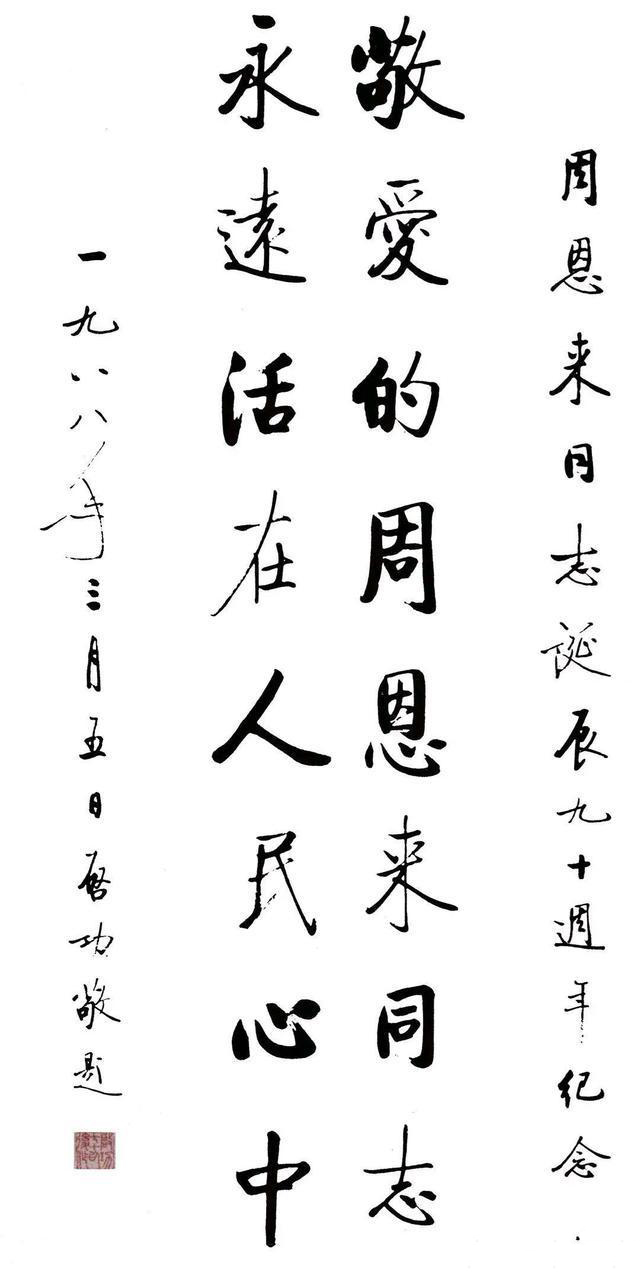 周恩来同志誕辰九十週年纪念
敬愛的周恩来同志
永遠活在人民心中
一九八八年三月五日启功敬题